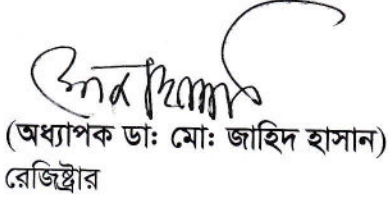 (অধ্যাপক ডাঃ মোঃ জাহিদ হাসান)
রেজিষ্ট্রার